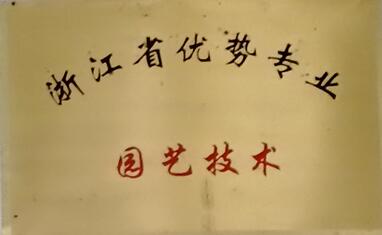 浙江省优势专业
园艺技术